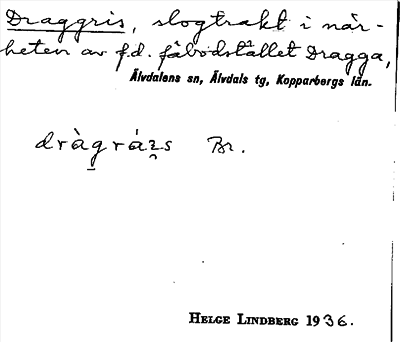 Draggris, slogtrakt i när-
heten av f.d. fäbodstället Dragga,
Älvdalens sn, Älvdals tg, Kopparbergs län.
dràg̱ráʒ̨s Br.
HELGE LINDBERG 1936.